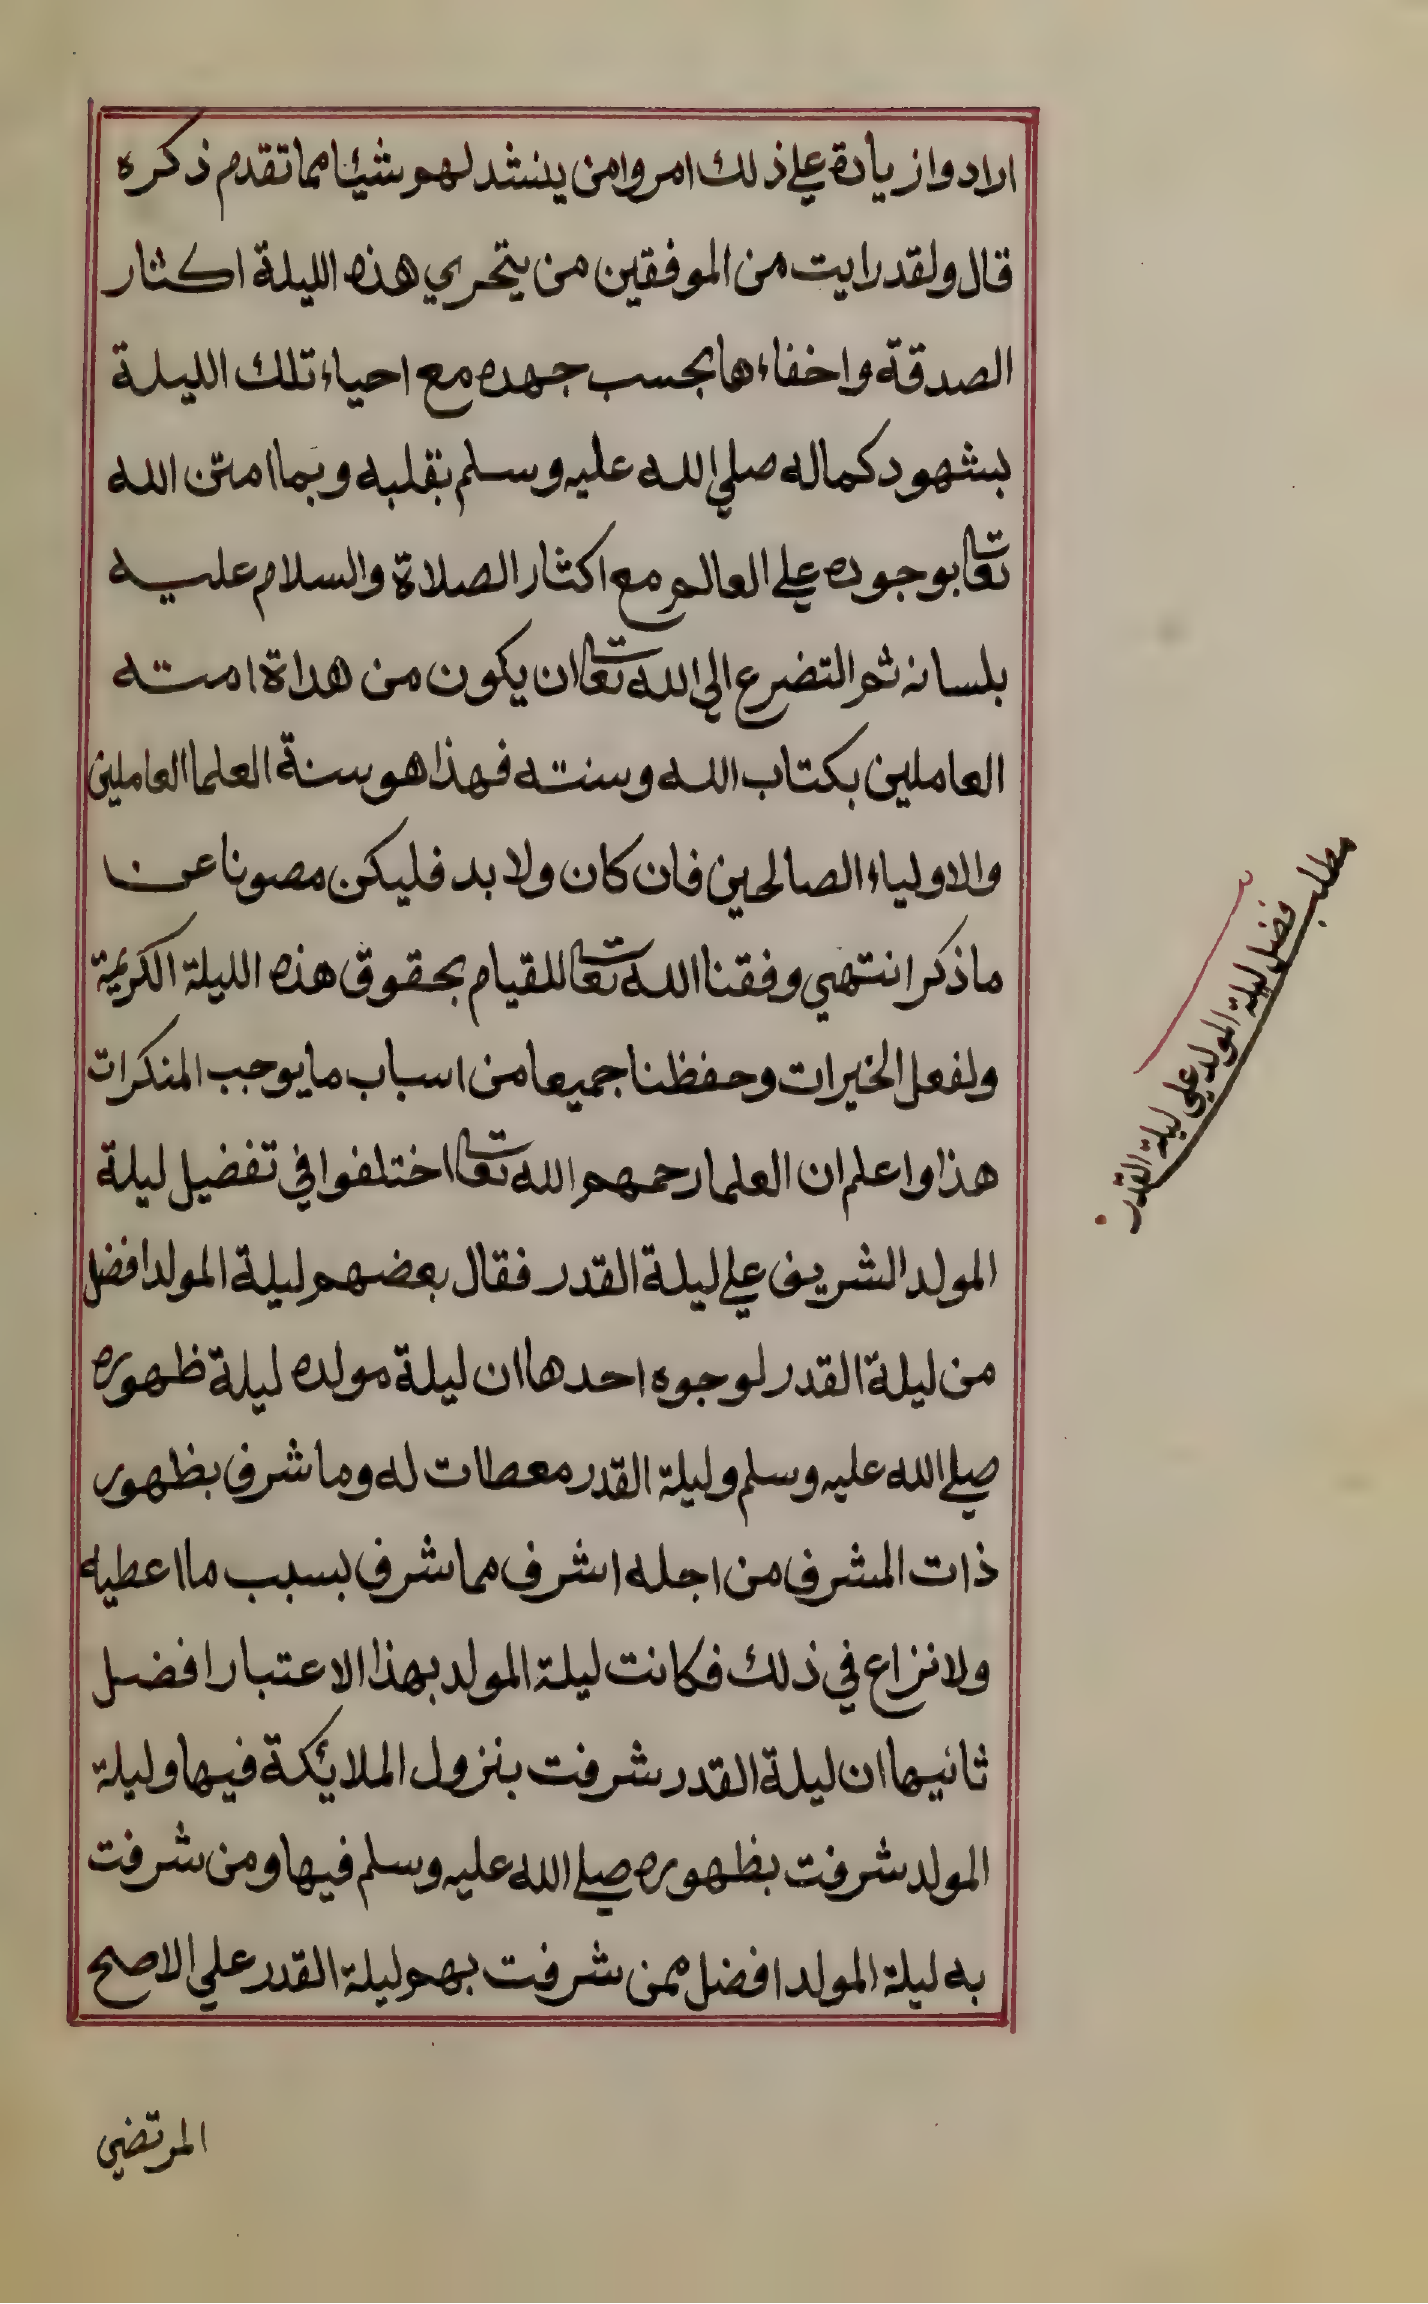 ارادوا زيادة علي ذلك امروا من ينشد لهم شيئا مما تقدم ذكره
قال ولقد رايت من الموفقين من يتحري هذه الليلة اكثار
الصدقة واخفاءها بحسب جهده مع احياء تلك الليلة
بشهود كماله صلي الله عليه وسلم بقلبه وبما امتن الله
تعا بوجوده علي العالم مع اكثار الصلاة والسلام عليه
بلسانه ثم التضرع الي الله تعا ان يكون من هداة امته
العاملين بكتاب الله وسنته فهذا هو سنة العلما العاملين
والاولياء الصالحين فان كان ولا بد فليكن مصونا عن
ما ذكر انتهي وفقنا الله تعا للقيام بحقوق هذه الليلة الكريمة
ولفعل الخيرات وحفظنا جميعا من اسباب ما يوجب المنكرات
هذا واعلم ان العلما رحمهم الله تعا اختلفوا في تفضيل ليلة
المولد الشريف علي ليلة القدر فقال بعضهم ليلة المولد افضل
من ليلة القدر لوجوه احدها ان ليلة مولده ليلة ظهوره
صلي الله عليه وسلم وليلة القدر معطات له وما شرف بظهور
ذات المشرف من اجله اشرف مما شرف بسبب ما اعطيه
ولا نزاع في ذلك فكانت ليلة المولد بهذا الاعتبار افضل
ثانيها ان ليلة القدر شرفت بنزول الملائكة فيها وليلة
المولد شرفت بظهوره صلي الله عليه وسلم فيها ومن شرفت
به ليلة المولد افضل ممن شرفت بهم ليلة القدر علي الاصح
المرتضي
مطلب فضل ليلة المولد علي ليلة القدر